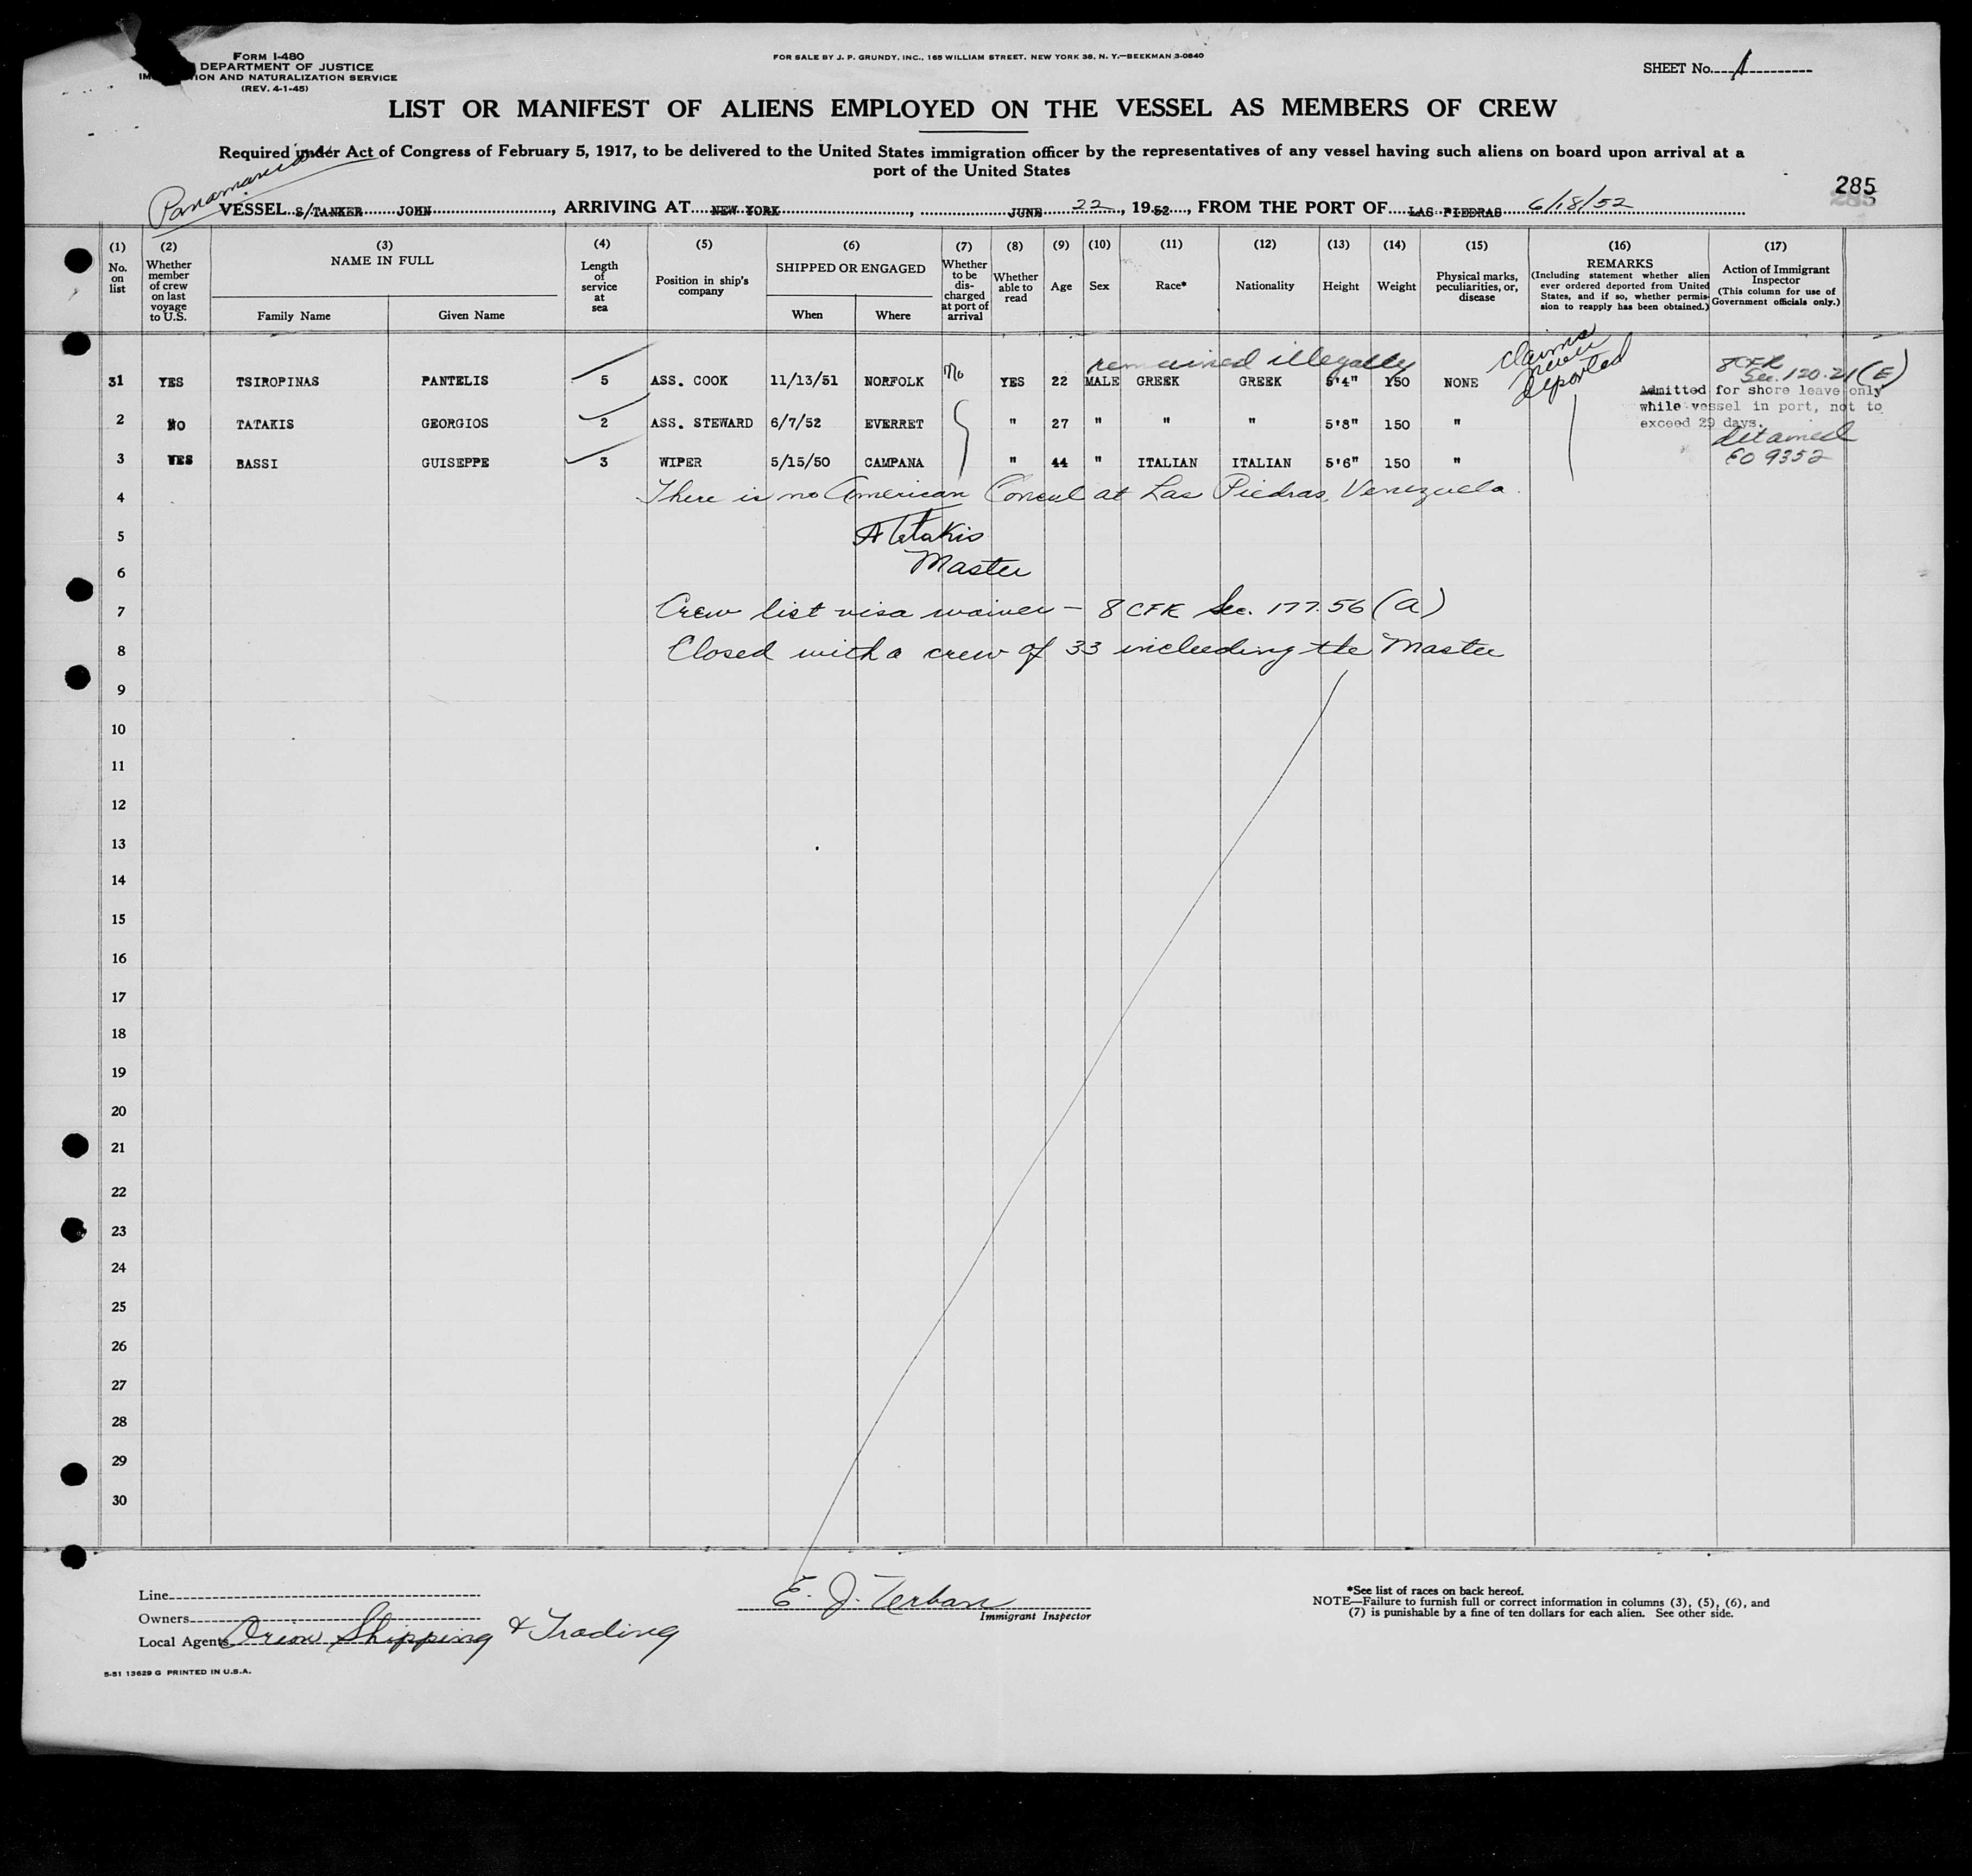 FORM I-480
DEPARTMENT OF JUSTICE
ION AND NATURALIZATION SERVICE
(REV. 4-1-45)
FOR SALE BY J. P. GRUNDY, INC., 165 WILLIAM STREET, NEW YORK 38, N. Y.—BEEKMAN 3-0840
SHEET No. 1
LIST OR MANIFEST OF ALIENS EMPLOYED ON THE VESSEL AS MEMBERS OF CREW
Required under Act of Congress of February 5, 1917, to be delivered to the United States immigration officer by the representatives of any vessel having such aliens on board upon arrival at a
port of the United States
285
Panamanian
VESSEL S/TANKER JOHN, ARRIVING AT NEW YORK, JUNE 22, 1952, FROM THE PORT OF LAS PIEDRAS 6/18/52
(1) No. on list
(2) Whether member of crew on last voyage to U.S.
(3) NAME IN FULL
Family Name
Given Name
(4) Length of service at sea
(5) Position in ship's company
(6) SHIPPED OR ENGAGED
When
Where
(7) Whether to be discharged at port of arrival
(8) Whether able to read
(9) Age
(10) Sex
(11) Race*
(12) Nationality
(13) Height
(14) Weight
(15) Physical marks, peculiarities, or, disease
(16) REMARKS (Including statement whether alien ever ordered deported from United States, and if so, whether permission to reapply has been obtained.)
(17) Action of Immigrant Inspector (This column for use of Government officials only.)
remained illegally
claims never deported
8 CFR Sec. 120.21 (E)
31 YES TSIROPINAS PANTELIS 5 ASS. COOK 11/13/51 NORFOLK No YES 22 MALE GREEK GREEK 5'4" 150 NONE
Admitted for shore leave only
while vessel in port, not to
exceed 29 days.
2 NO TATAKIS GEORGIOS 2 ASS. STEWARD 6/7/52 EVERRET " 27 " " " 5'8" 150 "
detained
EO 9352
3 YES BASSI GUISEPPE 3 WIPER 5/15/50 CAMPANA " 44 " ITALIAN ITALIAN 5'6" 150 "
4 There is no American Consul at Las Piedras, Venezuela.
5
Master
6
7 Crew list visa waiver - 8 CFR Sec. 177.56 (a)
8 Closed with a crew of 33 including the Master
9
10
11
12
13
14
15
16
17
18
19
20
21
22
23
24
25
26
27
28
29
30
Line
Owners
Local Agents Orion Shipping & Trading
E. J. Urban
Immigrant Inspector
*See list of races on back hereof.
NOTE—Failure to furnish full or correct information in columns (3), (5), (6), and
(7) is punishable by a fine of ten dollars for each alien. See other side.
5-51 13629 G PRINTED IN U.S.A.